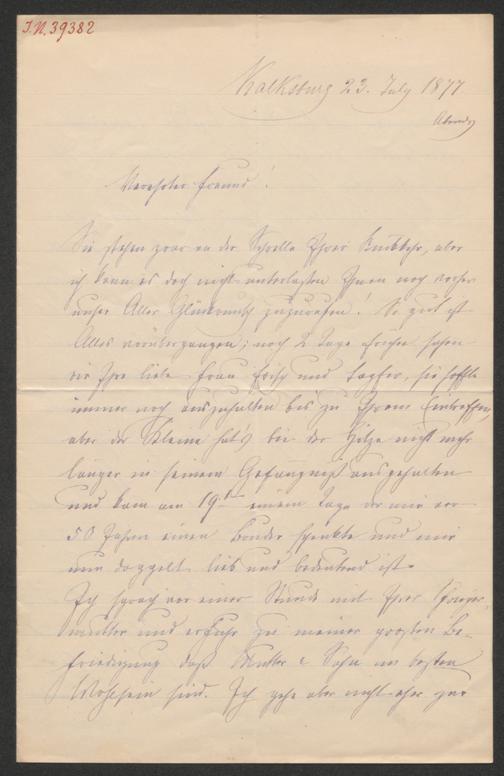 I.N. 39382
Kalksburg 23. July 1877
Abends
Verehrter Freund!
Sie stehen zwar an der Schwelle Ihrer Rückkehr, aber
ich kann es doch nicht unterlassen Ihnen noch vorher
unser Aller Glückwunsch zuzurufen! So gut ist
Alles vorübergegangen; noch 2 Tage früher sahen
wir Ihre liebe Frau frisch und tapfer, sie hoffte
immer noch auszuhalten bis zu Ihrem Eintreffen,
aber der Kleine hat's bei der Hitze nicht mehr
länger in seinem Gefängniß ausgehalten
und kam am 19t einem Tage der mir vor
50 Jahren einen Bruder schenkte und mir
nun doppelt lieb und bedeutend ist.
Ich sprach vor einer Stunde mit Ihrer Schwieger-
mutter und erfuhr zu meiner großen Be-
friedigung daß Mutter & Sohn im besten
Wohlsein sind. Ich gehe aber nicht eher zur